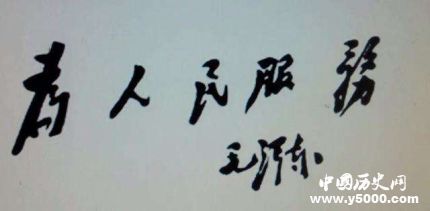 為人民服務
毛泽东
中国历史网
www.y5000.com